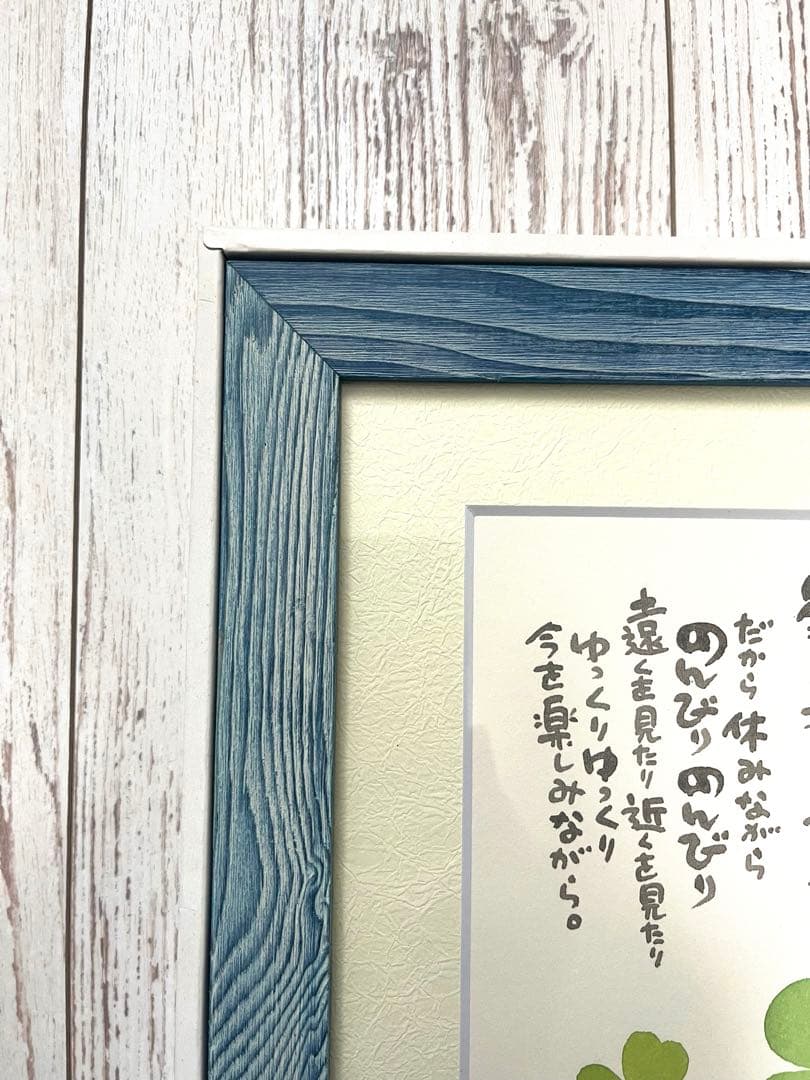 だから休みながら
のんびりのんびり
遠くを見たり近くを見たり
ゆっくりゆっくり
今を楽しみながら。